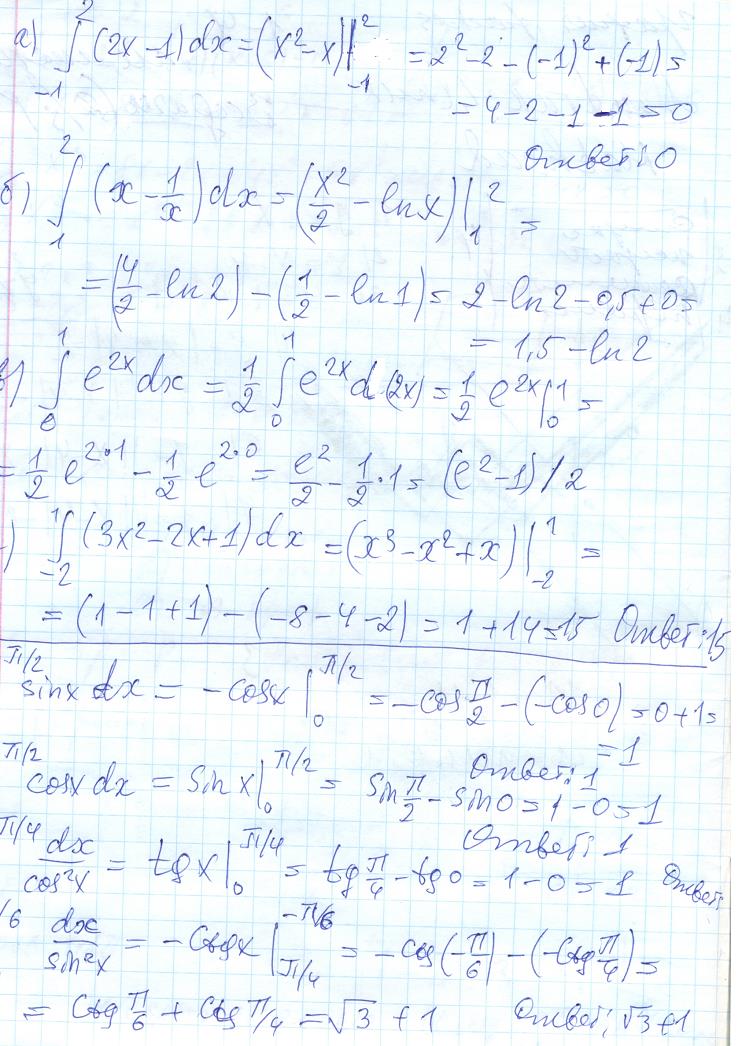 а) ∫₋₁² (2x−1)dx = (x²−x)|₋₁² = 2²−2−(−1)²+(−1)=
= 4−2−1−1=0
Ответ: 0
б) ∫₁² (x − 1/x)dx = (x²/2 − lnx)|₁² =
= (4/2 − ln2) − (1/2 − ln1) = 2−ln2−0,5+0=
= 1,5−ln2
в) ∫₀¹ e²ˣdx = 1/2 ∫₀¹ e²ˣd(2x) = 1/2 e²ˣ|₀¹ =
= 1/2 e^(2·1) − 1/2 e^(2·0) = e²/2 − 1/2·1 = (e²−1)/2
) ∫₋₂¹ (3x²−2x+1)dx = (x³−x²+x)|₋₂¹ =
= (1−1+1)−(−8−4−2) = 1+14=15 Ответ: 15
π/2 sinx dx = −cosx|₀^(π/2) = −cos π/2 − (−cos0) = 0+1=
=1
Ответ: 1
π/2 cosx dx = sinx|₀^(π/2) = sin π/2 − sin0 = 1−0=1
Ответ: 1
π/4 dx/cos²x = tgx|₀^(π/4) = tg π/4 − tg0 = 1−0=1 Ответ:
/6 dx/sin²x = −ctgx|_(π/4)^(−π/6) = −cos(−π/6) − (−ctg π/4) =
= ctg π/6 + ctg π/4 = √3 + 1 Ответ: √3+1